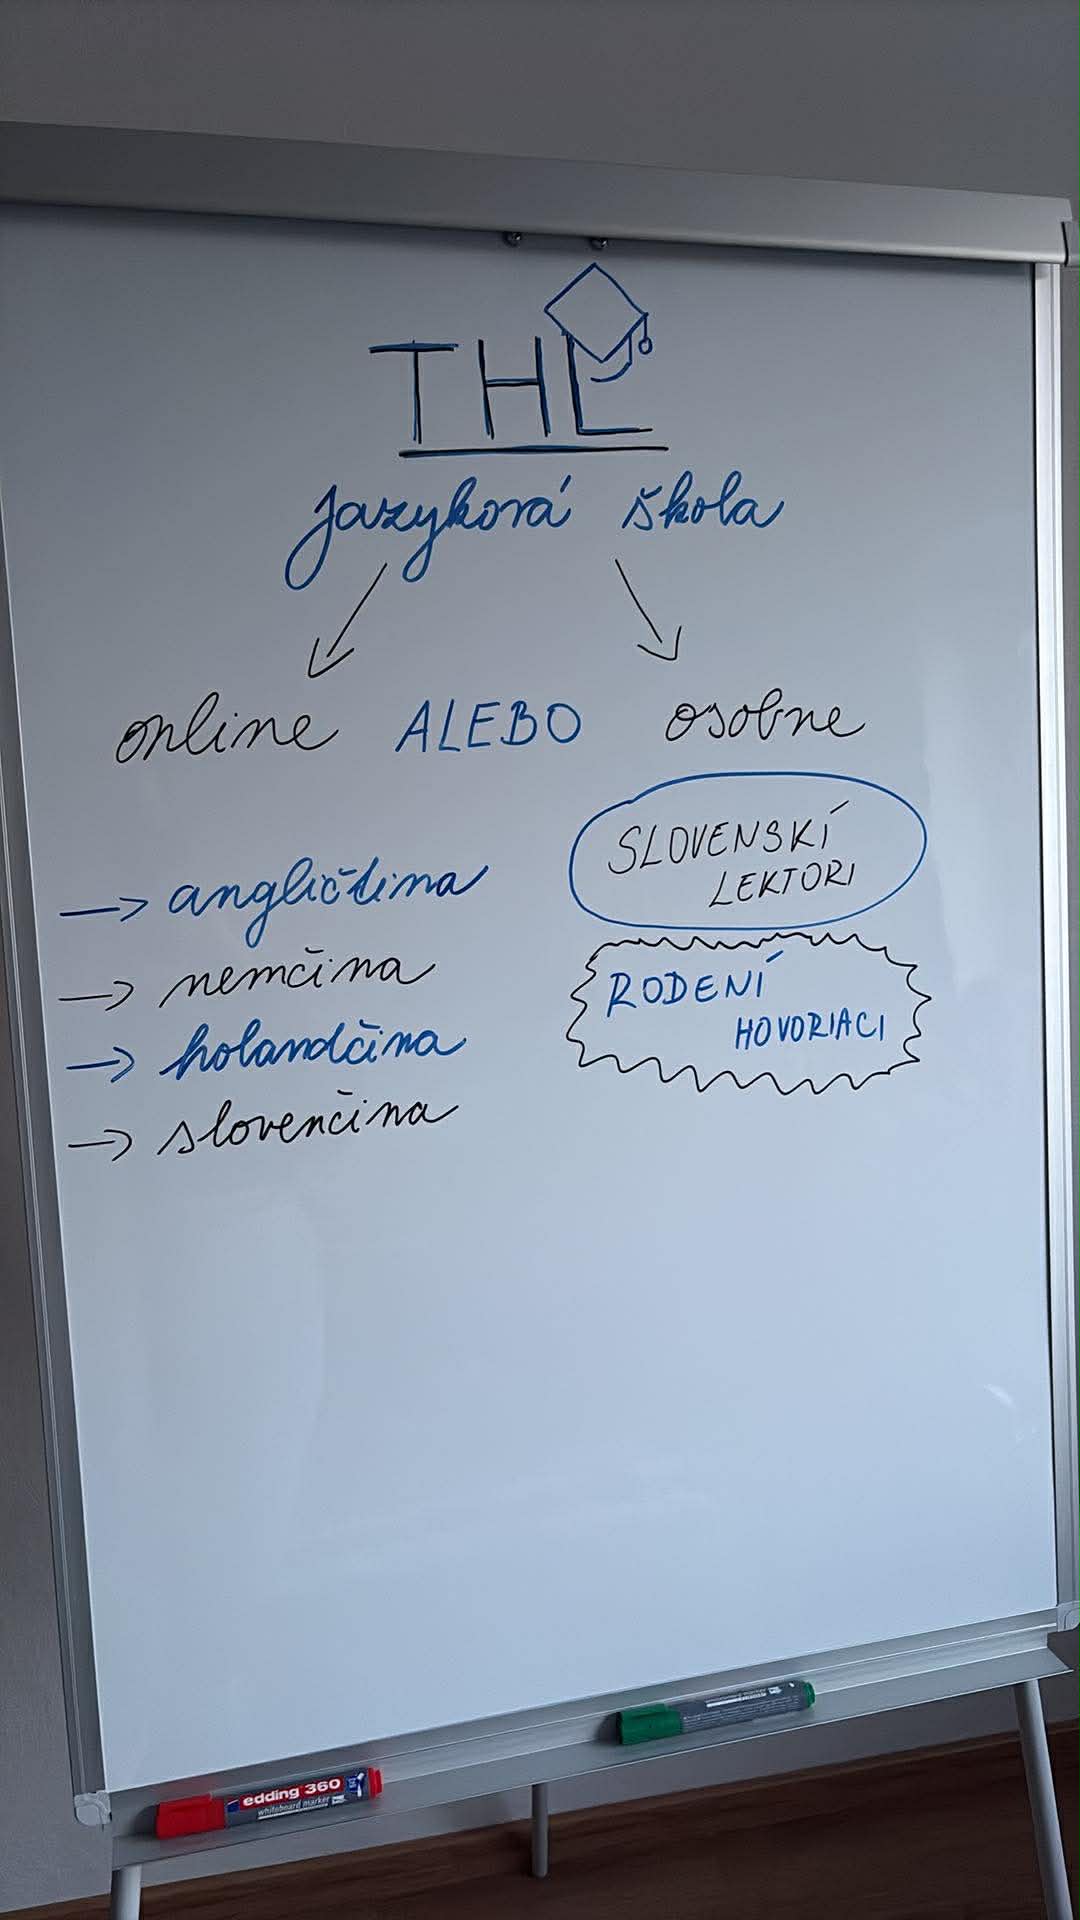 THL
Jazyková škola
online ALEBO osobne
→ angličtina
→ nemčina
→ holandčina
→ slovenčina
SLOVENSKÍ
LEKTORI
RODENÍ
HOVORIACI
edding 360
whiteboard marker